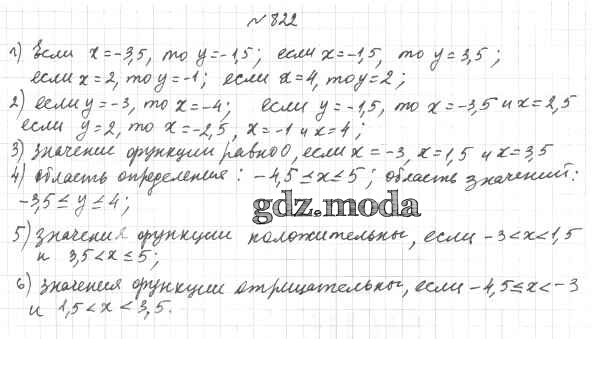 № 822
1) Если x = -3,5, то y = -1,5; если x = -1,5, то y = 3,5;
если x = 2, то y = -1; если x = 4, то y = 2;
2) если y = -3, то x = -4; если y = -1,5, то x = -3,5 и x = 2,5
если y = 2, то x = -2,5, x = -1 и x = 4;
3) значение функции равно 0, если x = -3, x = 1,5 и x = 3,5
4) область определения: -4,5 ≤ x ≤ 5; область значений:
-3,5 ≤ y ≤ 4;
gdz.moda
5) значения функции положительны, если -3 < x < 1,5
и 3,5 < x ≤ 5;
6) значения функции отрицательны, если -4,5 ≤ x < -3
и 1,5 < x < 3,5.